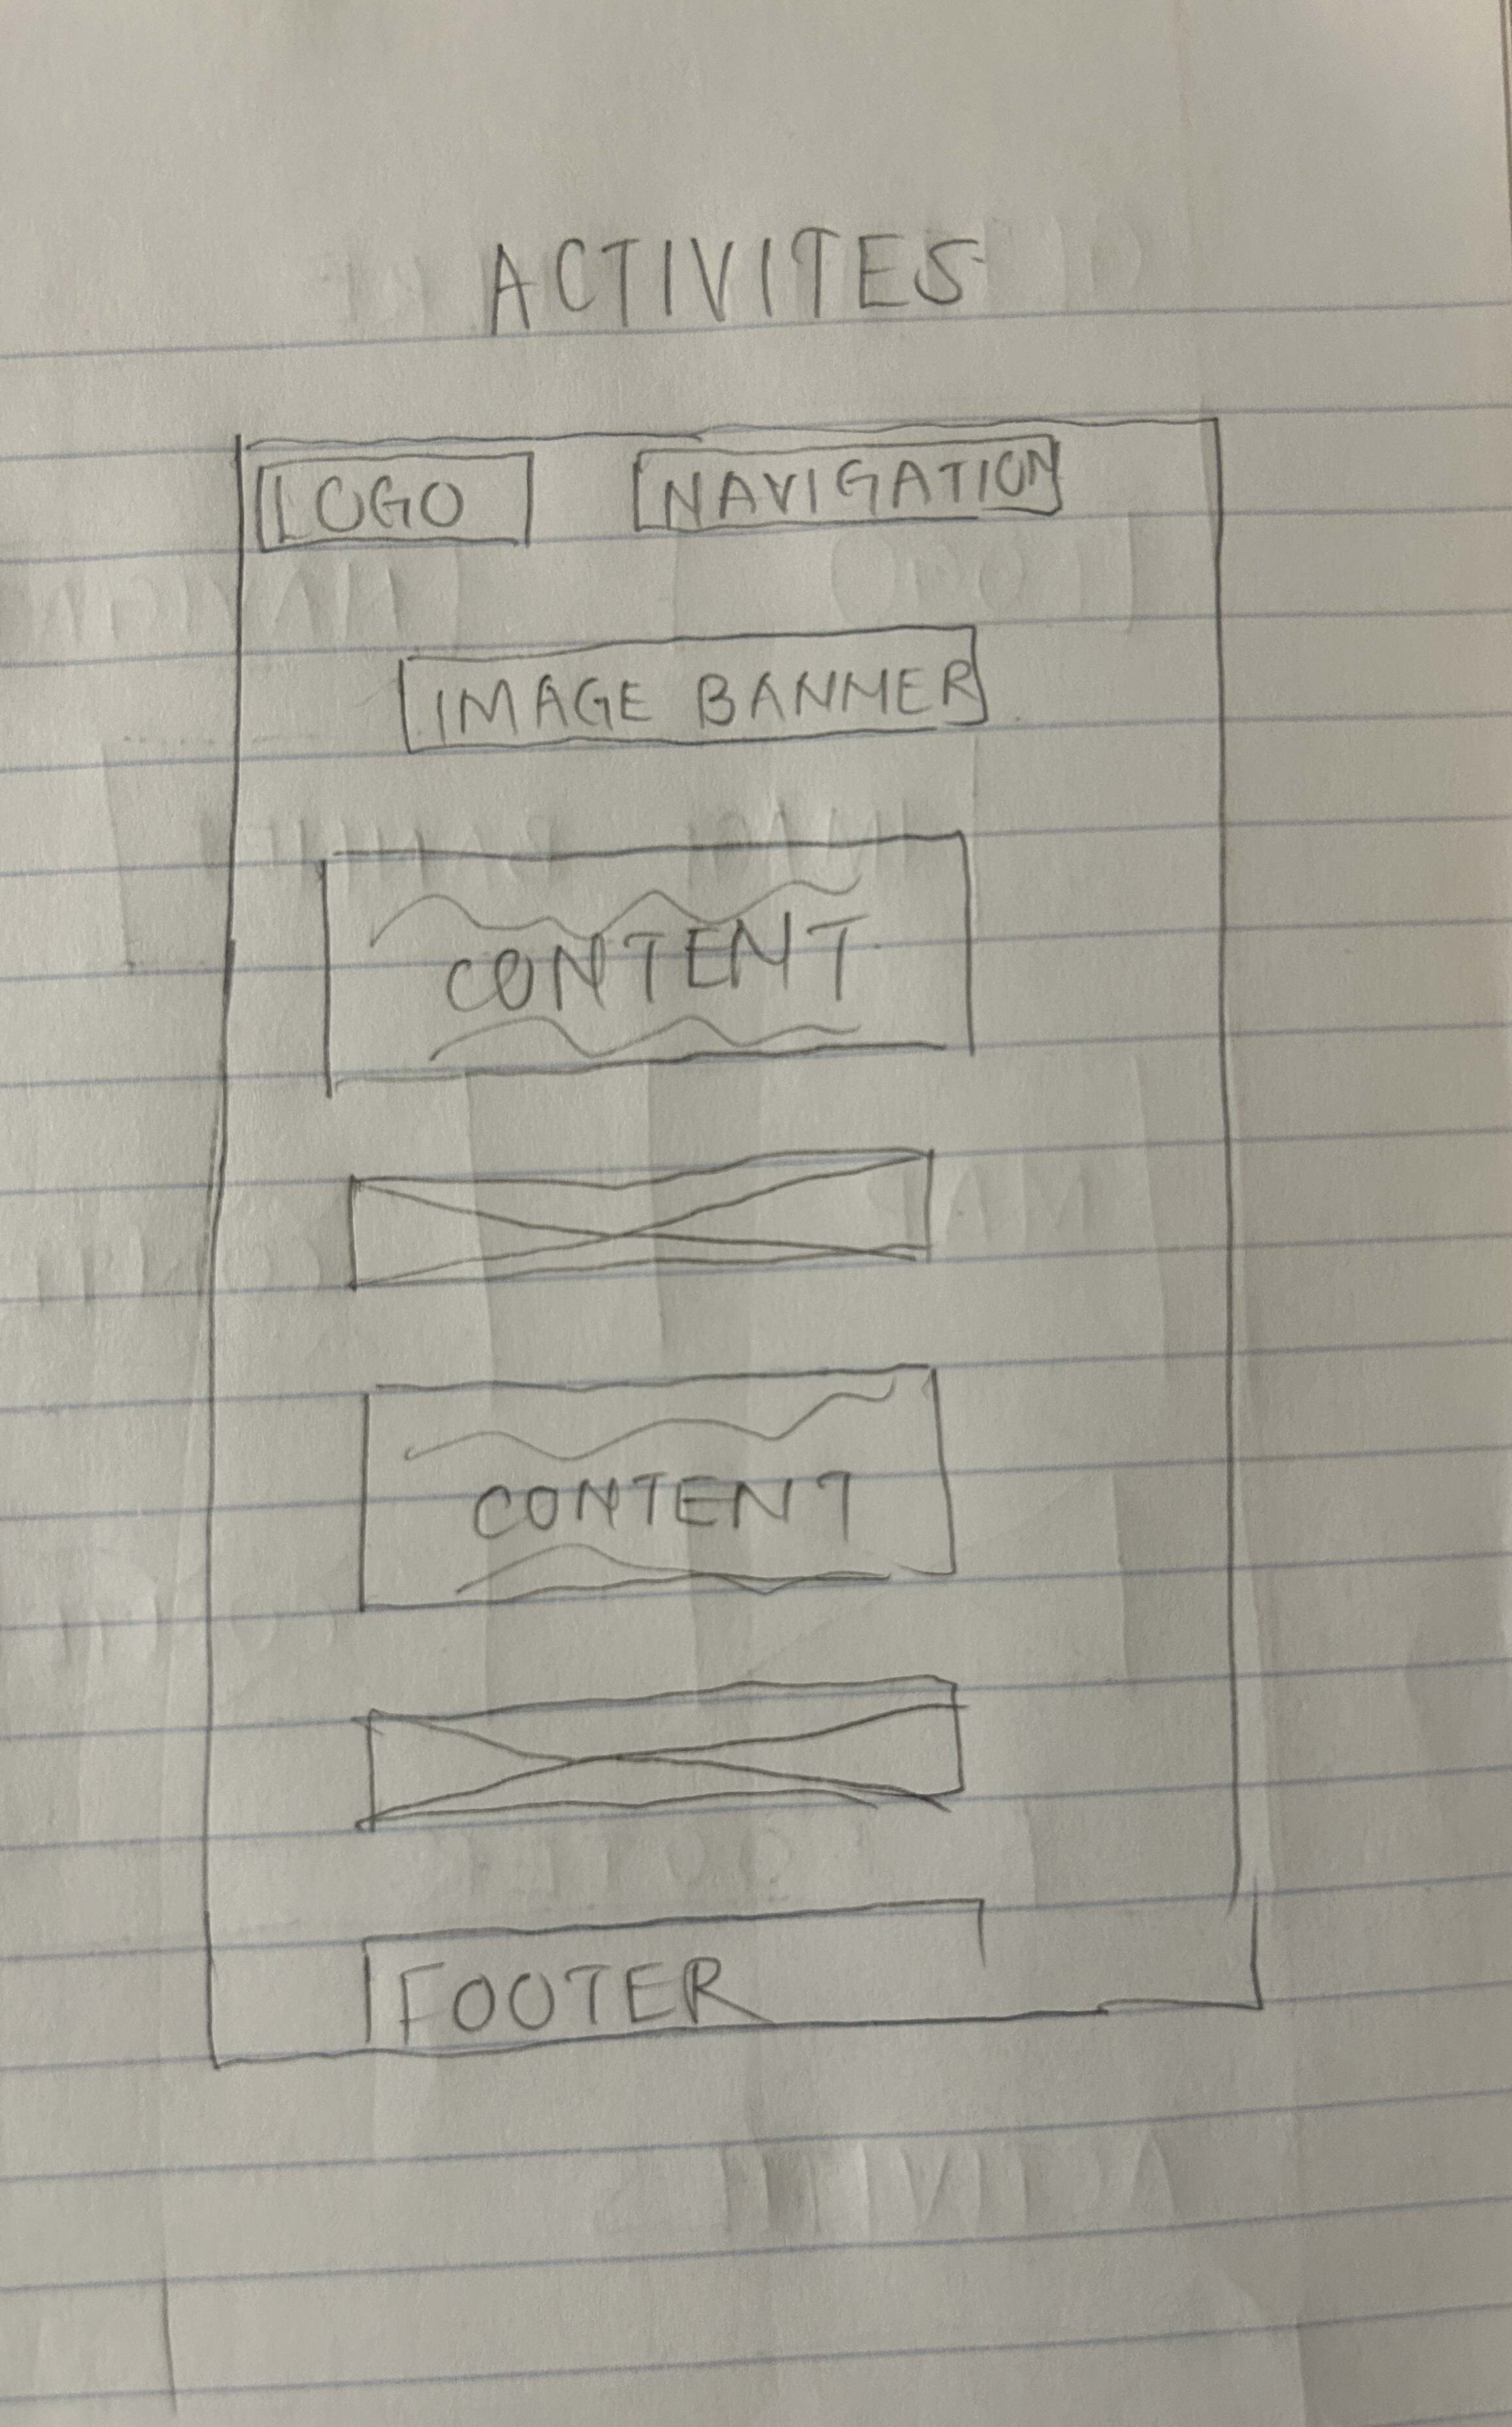 ACTIVITES
LOGO NAVIGATION
IMAGE BANNER
CONTENT
CONTENT
FOOTER